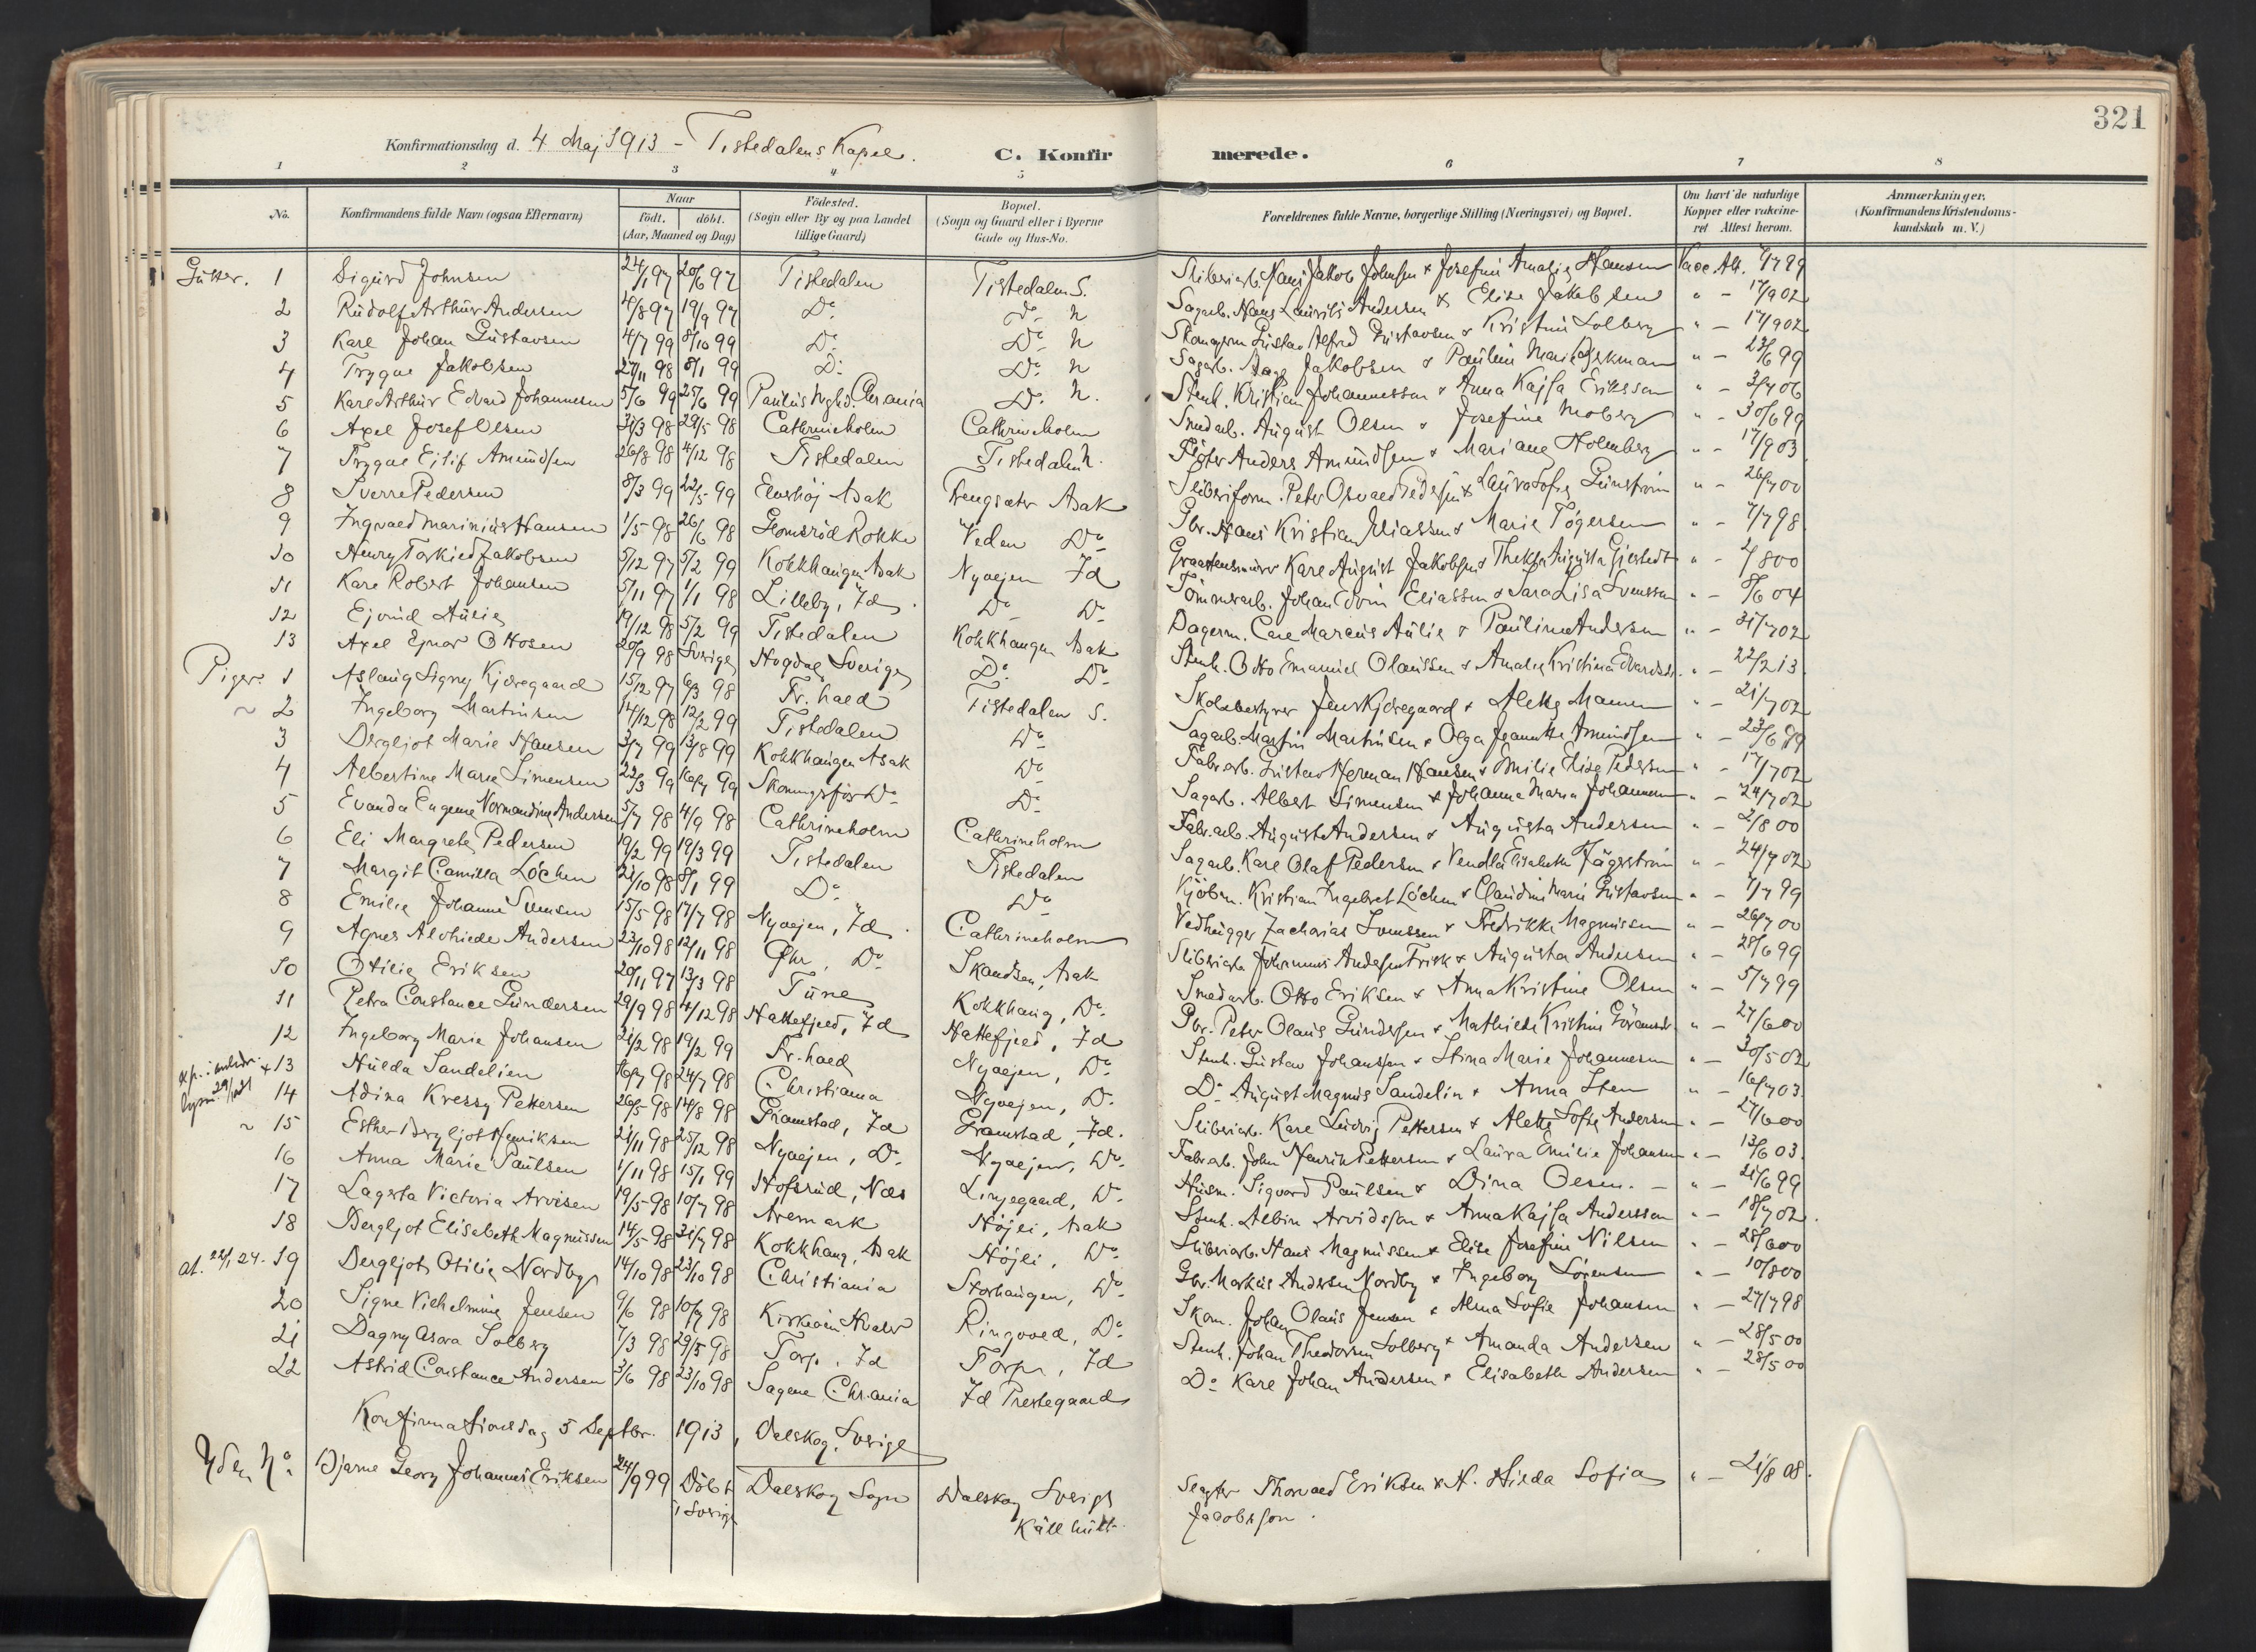 321
Konfirmationsdag d. 4 Maj 1913 - Tistedalens Kapel. C. Konfirmerede.
1 2 3 4 5 6 7 8
No. Konfirmandens fulde Navn (ogsaa Efternavn) Naar født. døbt. (Aar, Maaned og Dag) Fødested. (Sogn eller By og paa Landet tillige Gaard) Bopæl. (Sogn og Gaard eller i Byerne Gade og Hus-No. Forældrenes fulde Navne, borgerlige Stilling (Næringsvei) og Bopæl. Om havt de naturlige Kopper eller vakcineret Attest herom. Anmærkninger. (Konfirmandens Kristendomskundskab m. V.)
Gutter. 1 Sigurd Johnsen 24/1 97 20/6 97 Tistedalen Tistedalen S. Sliberiarb. Hans Jakob Johnsen & Josefine Amalie Hansen Vacc. Att. 4/7 99
2 Rudolf Arthur Andersen 4/8 97 19/9 97 Do Do N Sagarb. Hans Laurits Andersen & Elise Jakobsen " - 17/9 02
3 Karl Johan Gustavsen 4/7 99 8/10 99 Do Do N Gustav Alfred Gustavsen & Kristine Solberg " - 17/9 02
4 Trygve Jakobsen 27/11 98 8/1 99 Do Do N Sagarb. Aage Jakobsen & Pauline Marie " - 23/6 99
5 Karl Arthur Edvard Johannesen 5/6 99 25/6 99 Paulus Mgh. Chr.ania Do N. Stenh. Kristian Johannesson & Anna Kajsa Eriksson " - 3/7 06
6 Axel Josef Olsen 31/3 98 29/5 98 Cathrineholm Cathrineholm Smedarb. August Olsen & Josefine Moberg " - 30/6 99
7 Trygve Ejlif Amundsen 26/8 98 4/12 98 Tistedalen Tistedalen N. Anders Amundsen & Mariane Holmberg " - 17/9 03
8 Sverre Pedersen 8/3 99 22/5 99 Enerhøj Asak Asak Sliberiform. Peter Osvald Pedersen & Laura Sofie " - 26/7 00
9 Ingvald Marinius Hansen 1/5 98 26/6 98 Rokke Veden Do Gbr. Hans Kristian Eliassen & Marie Tøgersen " - 7/7 98
10 Henry Torkild Jakobsen 5/12 97 5/2 99 Kokkhaugen Asak Nyvejen Id Karl August Jakobsen & Thekla Augusta " - 4/8 00
11 Karl Robert Johansen 5/11 97 1/1 98 Lilleby, Id. Do Do Tømmerarb. Johan Edvin Eliassen & Sara Lisa Svensson " - 8/6 04
12 Ejvind Aulie 19/12 98 5/2 99 Tistedalen Kokkhaugen Asak Dagarm. Carl Marcus Aulie & Pauline Andersen " - 31/7 02
13 Axel Ejnar Ottosen 20/9 98 Sverige Hogdal Sverige Do Do Stenh. Otto Emanuel Olaussen & Amalie Kristina Edvardsd. " - 22/2 13.
Piger. 1 Aslaug Signy Kjdregaard 15/12 97 6/3 98 Fr. hald Tistedalen S. Skolebestyrer Jens Kjdregaard & Alette Mamen " - 21/7 02
~ 2 Ingeborg Martinsen 14/12 98 12/2 99 Tistedalen Do Sagarb. Martin Martinsen & Olga Jeanette Amundsen " - 23/6 99
3 Bergljot Marie Hansen 3/7 99 13/8 99 Kokkhaugen Asak Do Fabr.arb. Gustav Herman Hansen & Emilie Elise Pedersen " - 17/7 02
4 Albertine Marie Simensen 22/3 99 16/7 99 Skonningsfos Do Do Sagarb. Albert Simensen & Johanne Maria Johannesen " - 24/7 02
5 Evanda Eugenie Normandine Andersen 5/7 98 4/9 98 Cathrineholm Cathrineholm Fabr.arb. August Andersen & Augusta Andersen " - 2/8 00
6 Eli Margrethe Pedersen 19/2 99 19/3 99 Tistedalen Tistedalen Sagarb. Karl Olaf Pedersen & Vendla Elisabeth Jägerstrøm " - 24/7 02
7 Margit Camilla Løchen 21/10 98 8/1 99 Do Do Kjøbm. Kristian Ingebret Løchen & Claudine Marie Gustavsen " - 7/7 99
8 Emilie Johanne Svensen 15/5 98 17/7 98 Nyvejen, Id. Cathrineholm Vedhugger Zacharias Svensson & Fredrikke Magnussen " - 26/7 00
9 Agnes Alvhilde Andersen 23/10 98 12/11 98 Do Skandsen, Asak Johannes Andersen Frisk & Augusta Andersen " - 28/6 99
10 Otilie Eriksen 20/11 97 13/3 98 Tune Kokkhaug, Do Smedarb. Otto Eriksen & Anna Kristine Olsen " - 5/7 99
11 Petra Constance Gundersen 29/9 98 4/12 98 Hattefjeld, Id Hattefjeld, Id Gbr. Peter Olaus Gundersen & Mathilde Kristine " - 27/6 00
12 Ingeborg Marie Johansen 21/2 98 19/2 99 Fr. hald Nyvejen, Do Stenh. Gustav Johansson & Stina Marie Johannesen " - 30/5 02
29/1 21 + 13 Hulda Sandelien 16/7 98 24/7 98 Christiania Nyvejen, Do Do August Magnus Sandelin & Anna Sten " - 16/7 03.
14 Adina Kressy Pettersen 26/5 98 14/8 98 Gramstad, Id Gramstad, Id. Sliberiarb. Karl Ludvig Pettersen & Alette Sofie Andersen " - 27/6 00
~ 15 Esther Bergljot Henriksen 21/11 98 25/12 98 Nyvejen, Do Nyvejen, Do Fabr.arb. John Henrik Pettersen & Laura Emilie Johansen " - 13/6 03.
16 Anna Marie Paulsen 1/11 98 15/1 99 Hofsrud, Næs Linjegaard, Do Husm. Sigvard Paulsen & Dina Olsen. - " - 21/6 99
17 Lagerta Victoria Arvesen 19/5 98 10/7 98 Aremark Højli, Asak Stenh. Albin Arvidsson & Anna Kajsa Andersson " - 18/7 02.
18 Bergljot Elisabeth Magnussen 14/5 98 31/7 98 Kokkhaug, Asak Højli, Do Sliberiarb. Hans Magnussen & Elise Josefine Nilsen " - 28/6 00
at. 22/1 24. 19 Bergljot Otilie Nordby 14/10 98 23/10 98 Christiania Storhaugen, Do Gbr. Markus Andersen Nordby & Ingeborg Sørensen " - 10/8 00
20 Signe Vilhelmine Jensen 9/6 98 10/7 98 Kirkeøen Hvaler Ringvold, Do Skom. Johan Olaus Jensen & Alma Sofie Johansen " - 27/7 98
21 Dagny Asora Solberg 7/3 98 29/5 98 Torp, Id Torp, Id Stenh. Johan Theodorsen Solberg & Amanda Andersen " - 28/5 00
22 Astrid Constance Andersen 3/6 98 23/10 98 Sagene Chr.ania Id Prestegaard Do Karl Johan Andersen & Elisabeth Andersen " - 28/5 00
Konfirmationsdag 5 Septbr. 1913, Dalskog, Sverige
Uden No. Bjarne Georg Johannes Eriksen 24/9 99 Døbt i Sverige Dalskog Sogn Dalskog Sverige Thorvald Eriksen & A. Hilda Sofia Jacobsson. " - 21/8 08.